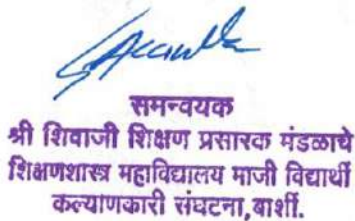 समन्वयक
श्री शिवाजी शिक्षण प्रसारक मंडळाचे
शिक्षणशास्त्र महाविद्यालय माजी विद्यार्थी
कल्याणकारी संघटना,बार्शी.